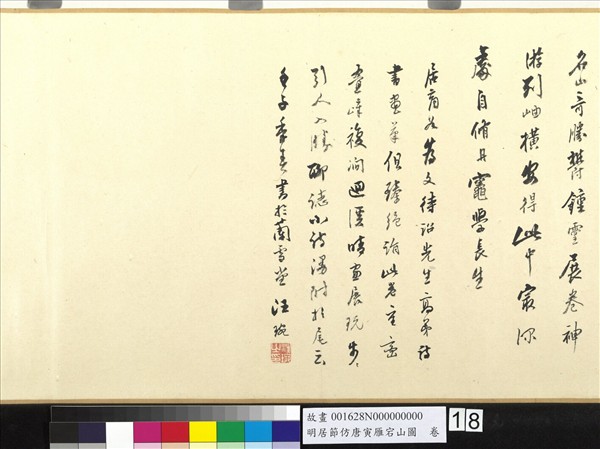 名山奇勝欝鍾靈展卷神
遊列岫橫安得此中最深
處自脩丹竈學長生
居商谷為文待詔先生高弟詩
書畫筆俱臻絶詣此卷重巒
疊嶂複澗迴溪晴畫展玩步々
引人入勝聊識小詩漫附於尾云
壬子季春書於蘭雪堂 汪琬
故畫 001628N000000000
明居節仿唐寅雁宕山圖 卷
18